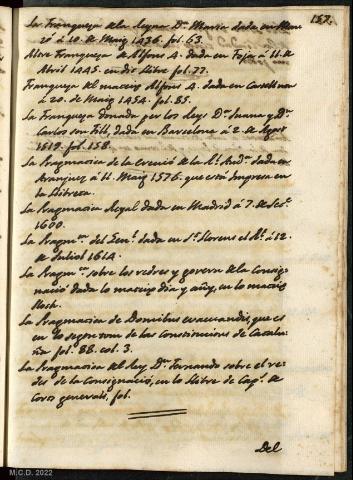 157.
La Franquesa de la Reyna D.ª Maria dada en Mon
zó á 20. de Maig 1436. fol. 63.
Altre Franquesa de Alfons 4. dada en Foja á 11. de
Abril 1445. en dit Llibre fol. 77.
Franquesa del mateix Alfons 4. dada en Castellnou
á 20. de Maig 1454. fol. 85.
Franquesa donada per los Reys D.ª Juana y D.n
Carlos son Fill, dada en Barcelona á 2. de Agost
1519. fol. 158.
La Pragmatica de la erecció de la R.l Aud.ª dada en
Aranjues á 11. Maig 1576. que está impresa en
la Llibreta.
La Pragmatica Reyal dada en Madrid á 7. de
1600.
La Pragm.ca del dada en S.t Llorens el R.l á 12.
de Juliol 1614.
La Pragm.ca sobre los redres y govern de la Consig-
nació dada lo mateix dia y any, en lo mateix
lloch.
La Pragmatica de Domibus evacuandis, que es
en lo segon tom de las Constitucions de Catalu-
ña fol. 88. col. 3.
La Pragmatica del Rey D.n Fernando sobre el re-
des de la Consignació, en lo Llibre de Cap.s de
Corts generals, fol.
Del
M.C.D. 2022